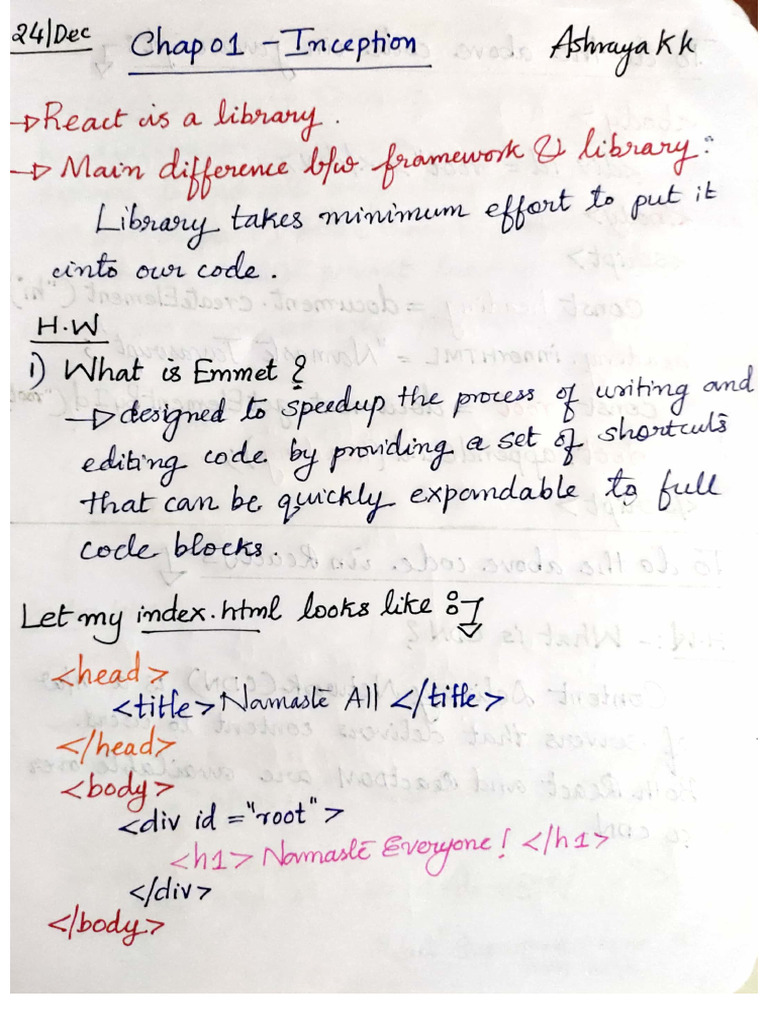 24|Dec Chap 01 - Inception Ashraya K k
→ React is a library.
→ Main difference b/w framework & library:
Library takes minimum effort to put it
into our code.
H.W
1) What is Emmet ?
→ designed to speedup the process of writing and
editing code by providing a set of shortcuts
that can be quickly expandable to full
code blocks.
Let my index.html looks like :
<head>
<title> Namastē All </title>
</head>
<body>
<div id = "root">
<h1> Namastē Everyone! </h1>
</div>
</body>